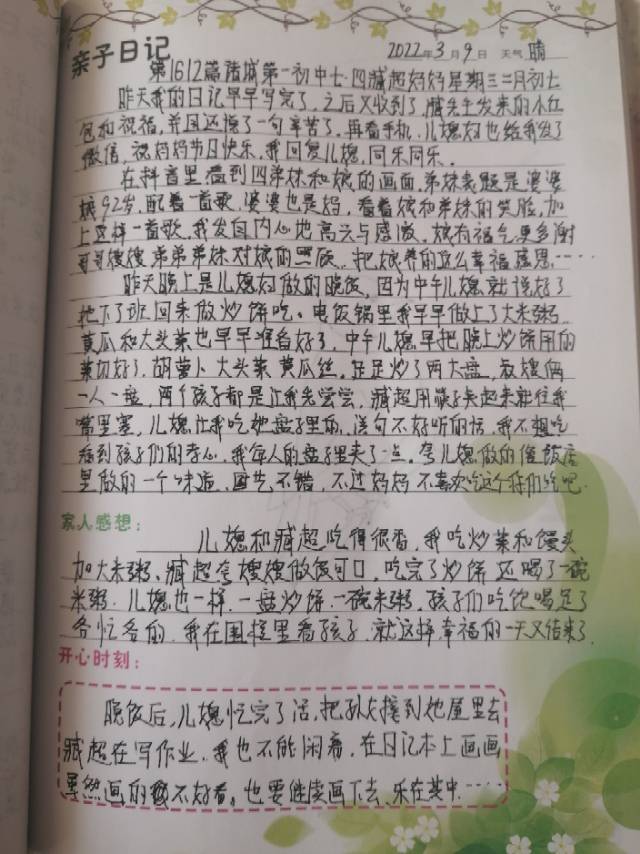 亲子日记
2022年3月9日 天气 晴
第1612篇 诸城第一初中七·四臧超妈妈 星期三 二月初七
昨天我的日记早早写完了,之后又收到了,臧先生发来的小红
包和祝福,并且还捎了一句辛苦了,再看手机,儿媳妇也给我发了
微信,祝妈妈节日快乐,我回复儿媳,同乐同乐。
在抖音里看到四弟妹和娘的画面,弟妹表题是婆婆
娘92岁,配着一首歌,婆婆也是妈,看着娘和弟妹的笑脸,加
上这样一首歌,我发自内心地高兴与感激,娘有福气,更多谢
哥哥嫂嫂,弟弟弟妹对娘的照顾,把娘养的这么幸福,感恩……
昨天晚上是儿媳妇做的晚饭,因为中午儿媳就说好了
她下了班回来做炒饼吃。电饭锅里我早早做上了大米粥,
黄瓜和大头菜也早早准备好了,中午儿媳早把晚上炒饼用的
菜切好了,胡萝卜,大头菜,黄瓜丝,足足炒了两大盘,叔嫂俩
一人一盘,两个孩子都是让我先尝尝,臧超用筷子夹起来就往我
嘴里塞,儿媳让我吃她盘子里的,说句不好听的话,我不想吃
看到孩子们的孝心,我每人的盘子里夹了一点,夸儿媳做的像饭店
里做的一个味道,厨艺不错,不过妈妈不喜欢吃这个,你们吃吧
家人感想:
儿媳和臧超吃得很香,我吃炒菜和馒头
加大米粥,臧超夸嫂嫂做饭可口,吃完了炒饼还喝了一碗
米粥,儿媳也一样,一盘炒饼,一碗米粥,孩子们吃饱喝足了
各忙各的,我在围栏里看孩子,就这样幸福的一天又结束了
开心时刻:
晚饭后,儿媳忙完了活,把孙女接到她屋里去
臧超在写作业,我也不能闲着,在日记本上画画
虽然画的不好看,也要继续画下去,乐在其中……